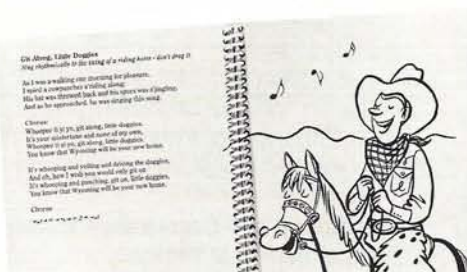 Git Along, Little Doggies
Sing rhythmically to the swing of a riding horse - don't drag it
As I was a-walking one morning for pleasure,
I spied a cowpuncher a-riding along;
His hat was throwed back and his spurs was a-jingling,
And as he approached, he was singing this song.
Chorus:
Whoopee ti yi yo, git along, little doggies,
It's your misfortune and none of my own,
Whoopee ti yi yo, git along, little doggies,
You know that Wyoming will be your new home.
It's whooping and yelling and driving the doggies,
And oh, how I wish you would only git on
It's whooping and punching, git on, little doggies,
You know that Wyoming will be your new home.
Chorus